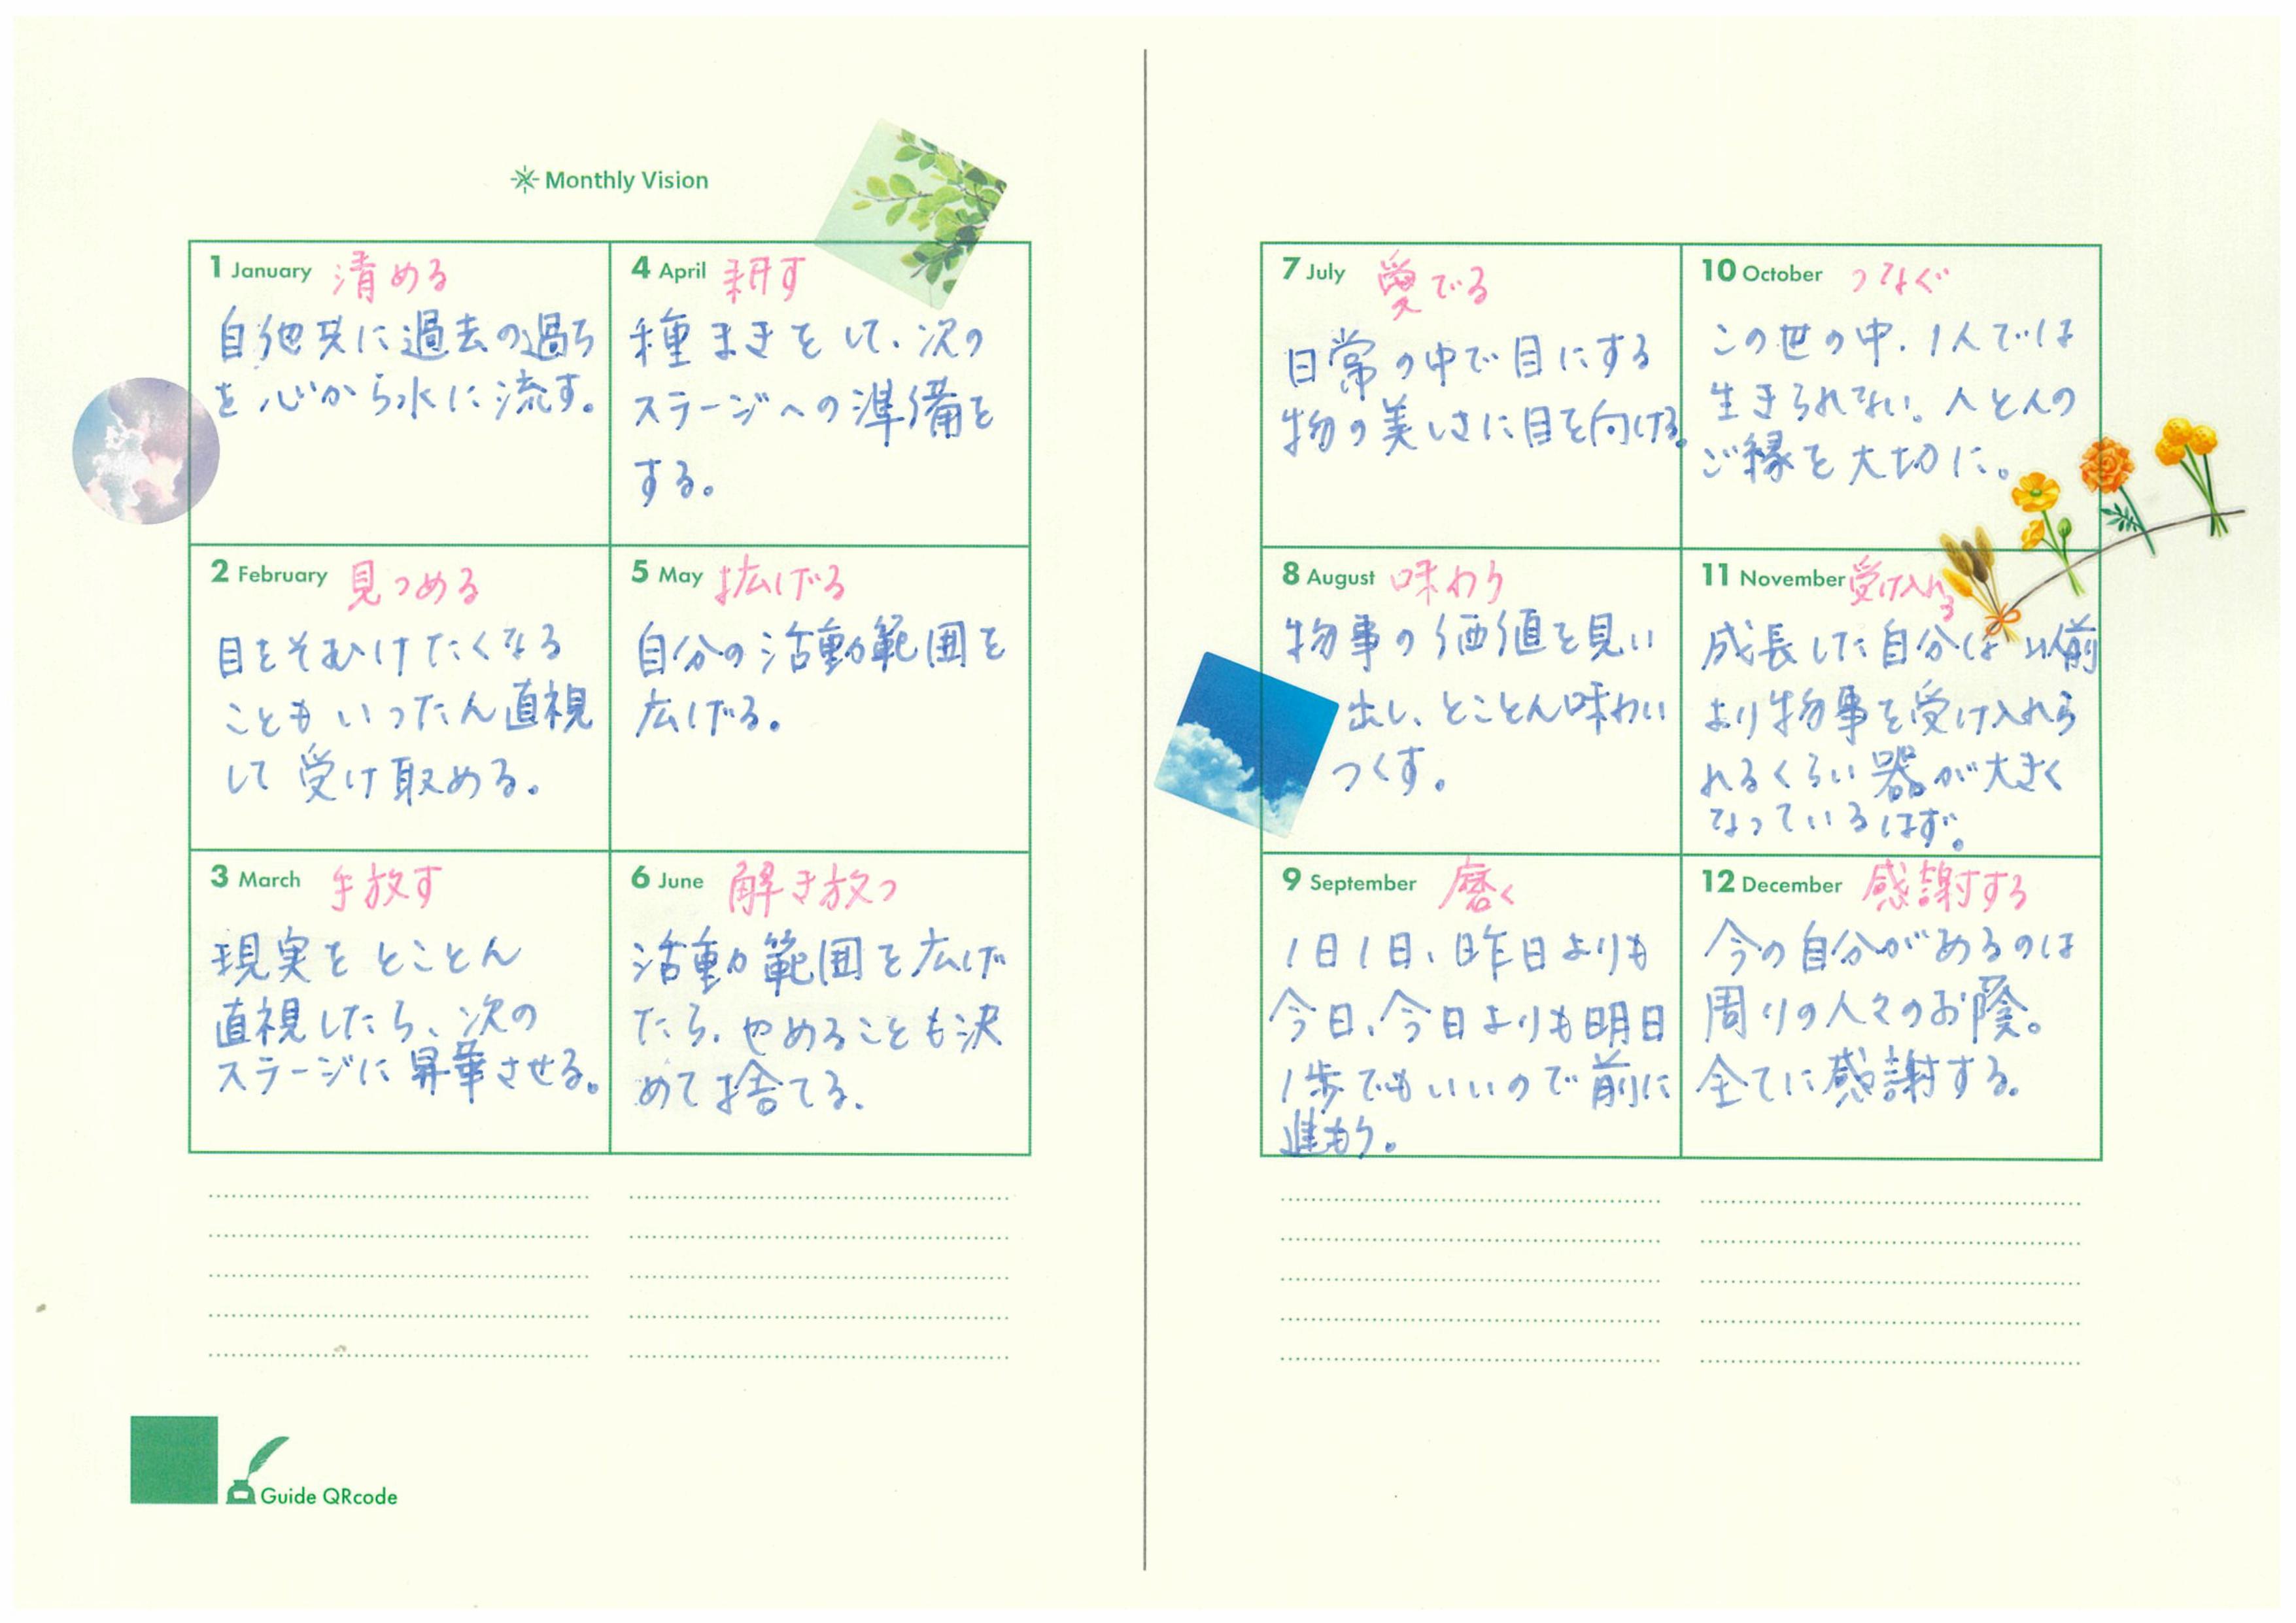 Monthly Vision
1 January 清める
自他共に過去の過ち
を心から水に流す。
2 February 見つめる
目をそむけたくなる
こともいったん直視
して受け取める。
3 March 手放す
現実をとことん
直視したら、次の
ステージに昇華させる。
4 April 耕す
種まきをして、次の
ステージへの準備を
する。
5 May 広げる
自分の活動範囲を
広げる。
6 June 解き放つ
活動範囲を広げ
たら、やめることも決
めて捨てる。
Guide QRcode
7 July 愛でる
日常の中で目にする
物の美しさに目を向ける。
8 August 味わう
物事の価値を見い
出し、とことん味わい
つくす。
9 September 磨く
1日1日、昨日よりも
今日、今日よりも明日
1歩でもいいので前に
進もう。
10 October つなぐ
この世の中、1人では
生きられない。人と人の
ご縁を大切に。
11 November 受け入れ
る
成長した自分は以前
より物事を受け入れら
れるくらい器が大きく
なっているはず。
12 December 感謝する
今の自分があるのは
周りの人々のお陰。
全てに感謝する。